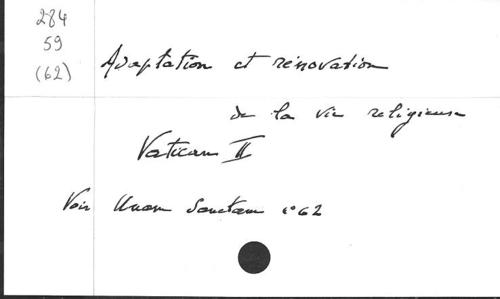 284
59
(62)
Adaptation et rénovation
de la vie religieuse
Vatican II
Voir Unam Sanctam n°62